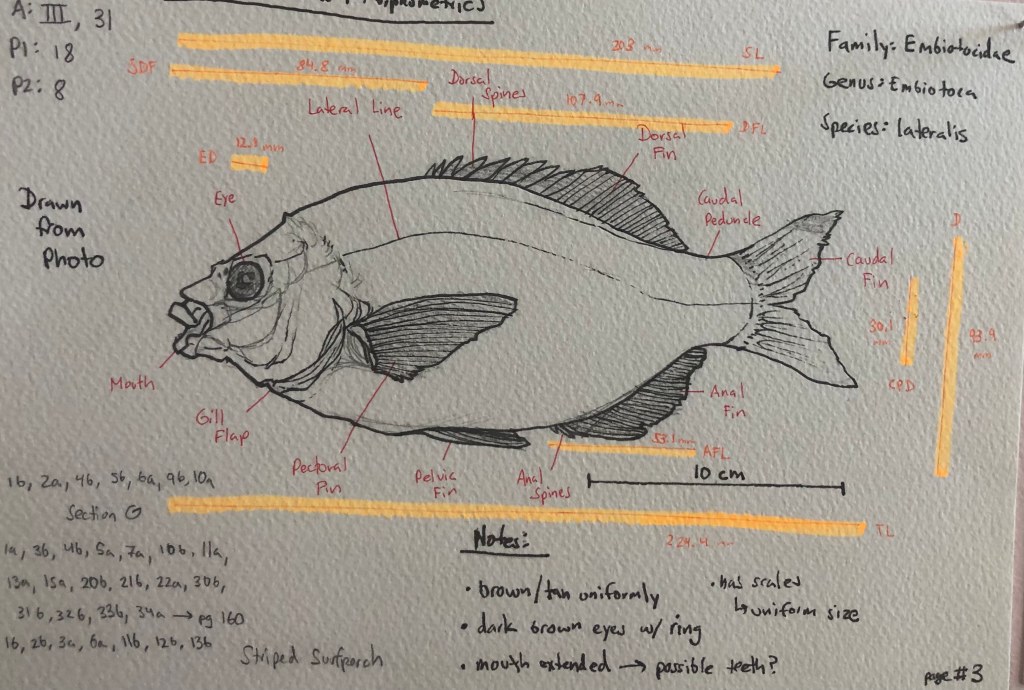 A: III, 31
P1: 18
P2: 8
Family: Embiotocidae
Genus: Embiotoca
Species: lateralis
203 mm
SL
SDF
84.8 mm
Dorsal
Spines
107.9 mm
DFL
Lateral Line
Dorsal
Fin
ED
12.9 mm
Eye
Drawn
from
Photo
Caudal
Peduncle
Caudal
Fin
D
30.1
mm
93.9
mm
CPD
Mouth
Gill
Flap
Pectoral
Fin
Pelvic
Fin
Anal
Spines
Anal
Fin
53.1 mm
AFL
10 cm
TL
224.4 mm
1b, 2a, 4b, 5b, 6a, 9b, 10a
Section G
1a, 3b, 4b, 5a, 7a, 10b, 11a,
13a, 15a, 20b, 21b, 22a, 30b,
31b, 32b, 33b, 34a → pg 160
1b, 2b, 3a, 6a, 11b, 12b, 13b
Striped Surfperch
Notes:
• brown/tan uniformly
• dark brown eyes w/ ring
• mouth extended → possible teeth?
• has scales
↳ uniform size
page #3